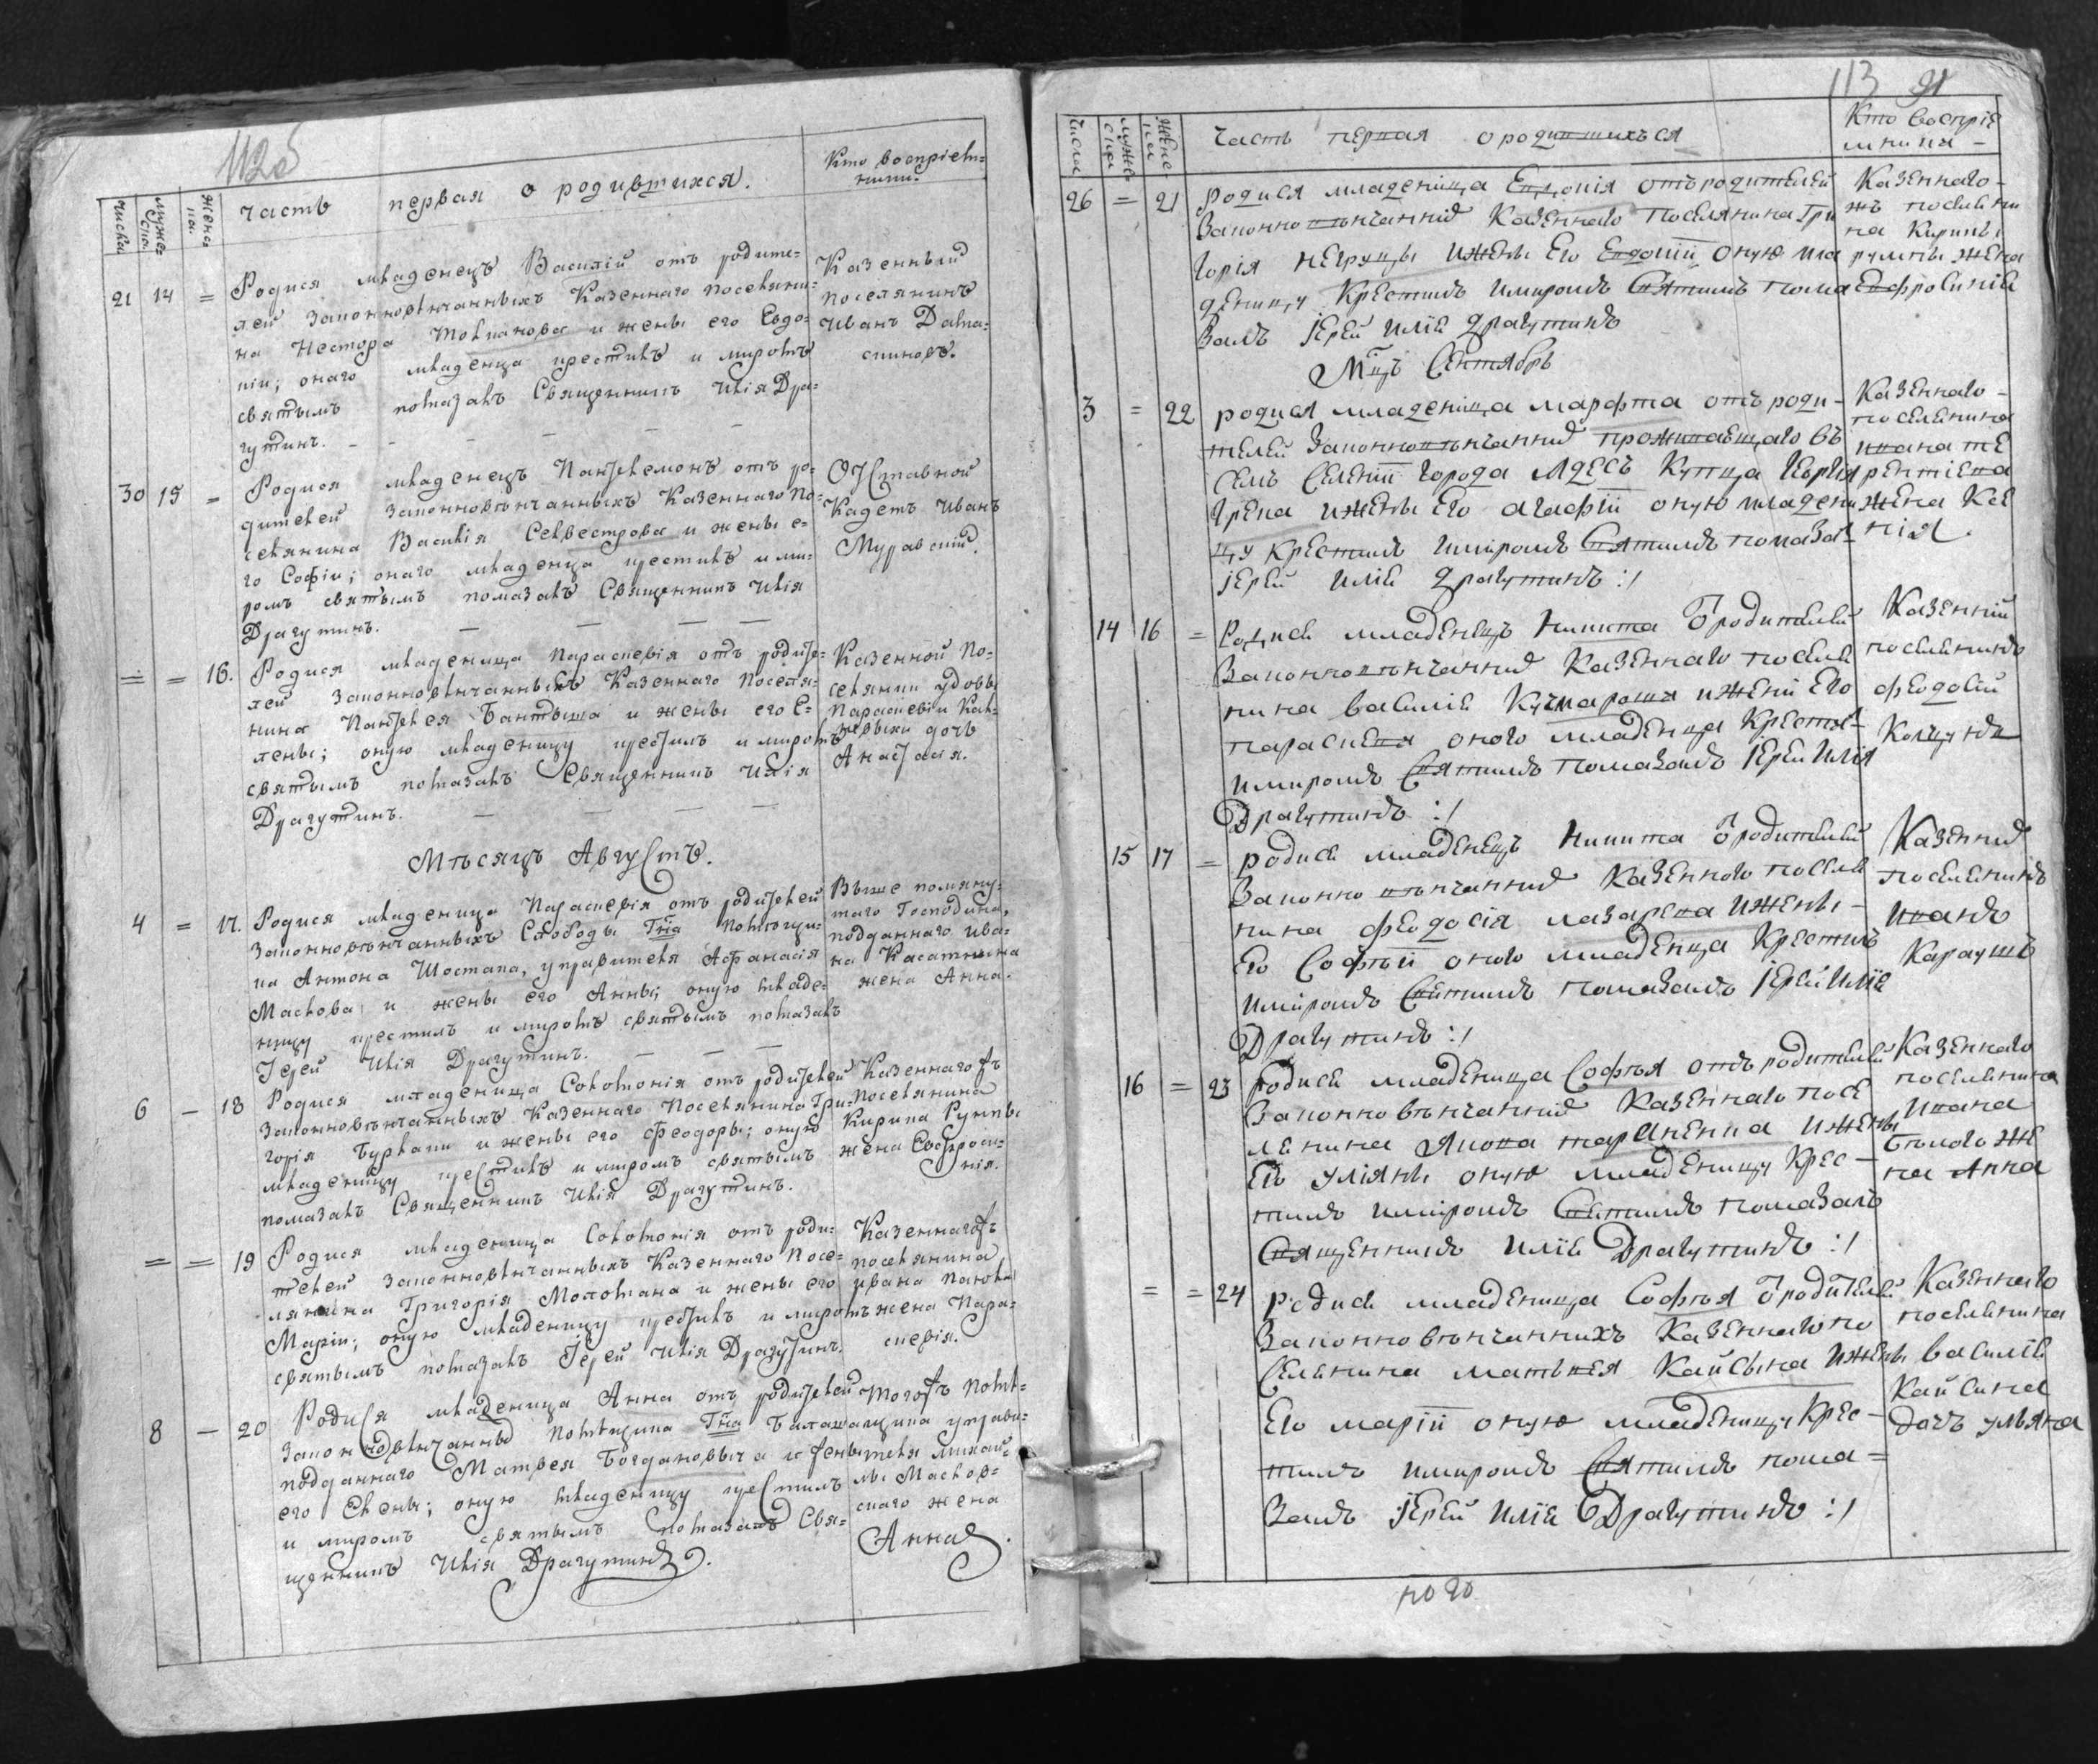 112об
Числа Мужеска. Женска. Часть первая о родившихся. Кто воспріемники.
21 14 = Родися младенецъ Василій отъ родите=
лей законновѣнчанныхъ Казеннаго поселяни=
на Нестора Толмачова и жены его Евдо=
кіи; онаго младенца крестилъ и миромъ
святымъ помазалъ Священникъ Илія Дра=
гутинъ. – – – – –
Казенный
поселянинъ
Иванъ
30 15 = Родися младенецъ Пантелемонъ отъ ро=
дителей законновѣнчанныхъ Казеннаго По=
селянина Василія Селвестрова и жены е=
го Софіи; онаго младенца крестилъ и ми=
ромъ святымъ помазалъ Священникъ Илія
Драгутинъ. – – – –
Отставной
Кадетъ Иванъ
Муравскій.
= = 16. Родися младеница Параскевія отъ родите=
лей законновѣнчанныхъ Казеннаго Поселя=
нина Пантелея Бантыша и жены его Е=
лены; оную младеницу крестилъ и миромъ
святымъ помазалъ Священникъ Илія
Драгутинъ. – – – –
Казенной По=
селянки удовы
Параскевіи
дочь
Анастасія.
Мѣсяцъ Августъ.
4 = 17. Родися младеница Параскевія отъ родителей
законновѣнчанныхъ Слободы Гна Помѣщи=
ка Антона Шостака, управителя Афанасія
Маслова и жены его Анны; оную младе=
ницу крестилъ и миромъ святымъ помазалъ
Іерей Илія Драгутинъ. – – –
Выше помяну=
таго Господина,
подданнаго Ива=
на Касаткина
жена Анна.
6 – 18 Родися младеница Соломонія отъ родителей
законновѣнчанныхъ Казеннаго Поселянина Гри=
горія и жены его Феодоры; оную
младеницу крестилъ и миромъ святымъ
помазалъ Священникъ Илія Драгутинъ.
Казеннагожъ
Поселянина
Кирила
жена Евфроси=
нія.
= = 19 Родися младеница Соломонія отъ роди=
телей законновѣнчанныхъ Казеннаго Посе=
лянина Григорія Молотана и жены его
Маріи; оную младеницу крестилъ и миромъ
святымъ помазалъ Іерей Илія Драгутинъ.
Казеннагожъ
поселянина
Ивана
жена Пара=
скевія.
8 – 20 Родися младеница Анна отъ родителей
законновѣнчанны Помѣщика Гна
подданнаго Матвея Богдановыча и жены
его Елены; оную младеницу крестилъ
и миромъ святымъ помазалъ Свя=
щенникъ Илія Драгутинъ.
Тогожъ помѣ=
щика управи=
теля Михай=
лы Маслов=
скаго жена
Анна.
113 91
Числа мужеска женска Часть первая о родившихъся Кто воспріе
мники –
26 = 21 родися младеница Евдокія отъ родителей
законновѣнчанній Казеннаго поселянина Гри
горія Негруцы и жены его Евдокіи оную мла
деницу крестилъ и миромъ святимъ пома
залъ Іерей Иліе Драгутинъ
Казеннаго
жъ поселени
на Кирилы
жена
Евфросиніе
Мцъ Сентябрь
3 = 22 родися младеница Марфта отъ роди –
телей законновѣнчанній проживаещаго въ
семъ селеніи города Адесъ купца Георгія
Грека и жены его Агафіи оную младени
цу крестилъ и миромъ святимъ помазал
Іерей Иліе Драгутинъ :/
Казеннаго –
поселенина
Ивана Те
рентіева
жена Ксе
нія.
14 16 = Родисе младенецъ Никита Ѿ родителей
законновѣнчанній Казеннаго посели
нина Василіе и жени его
Параскева оного младенца крестил
и миромъ святимъ помазалъ Іерей Иліа
Драгутинъ :/
Казенній
поселенинъ
Феодосій
15 17 = родисе младенецъ Никита Ѿ родителей
законновѣнчанній Казенного посели
нина Феодосія Лазарева и жены –
его Софѣи оного младенца крестилъ
и миромъ святимъ помазалъ Іерей Иліе
Драгутинъ :/
Казенній
поселенинъ
Иванъ
Караушъ
16 = 23 Родисе младеница Софѣя отъ родителей
законновѣнчанній Казеннаго посе
ленина Якова и жены
его Улияны оную младеницу крес –
тилъ и миромъ святимъ помазалъ
священникъ Иліе Драгутинъ :/
Казеннаго
поселенина
Ивана
Бѣлого же
на Анна
= = 24 родисе младеница Софѣя Ѿ родителей
законновѣнчаннихъ Казеннаго по
селенина Матьвея Кайсына и жены
его Маріи оную младеницу крес –
тилъ и миромъ святимъ пома=
залъ Іерей Иліе Драгутинъ :/
Казеннаго
поселенина
Василіе
Кайсина
дочъ Ульяна